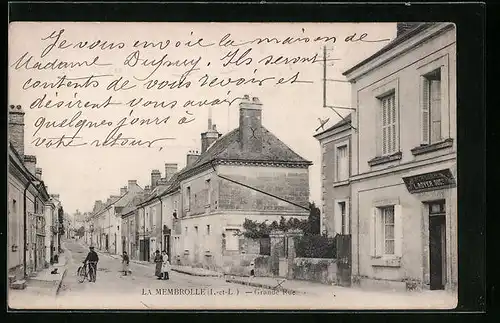 Je vous envoie la maison de
Madame Dupuy. Ils seront
contents de vous revoir et
désirent vous avoir
quelques jours à
votre retour.
LA MEMBROLLE (I.-et-L.) — Grande Rue